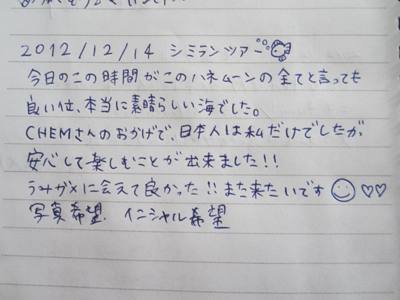 2012/12/14 シミランツアー
今日のこの時間がこのハネムーンの全てと言っても
良い位、本当に素晴らしい海でした。
CHEMさんのおかげで、日本人は私だけでしたが、
安心して楽しむことが出来ました!!
会えて良かった!!また来たいです
写真希望、イニシャル希望